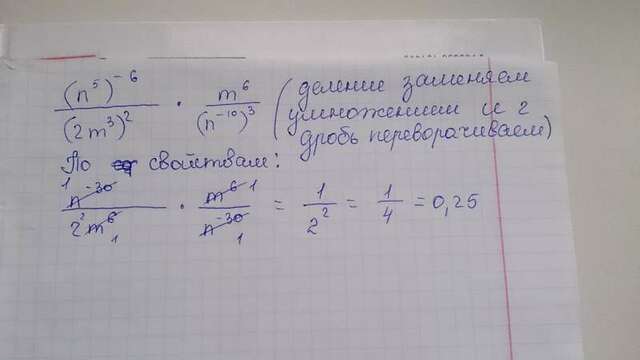 (n⁵)⁻⁶ / (2m³)² · m⁶ / (n⁻¹⁰)³ (деление заменяем
умножением и 2
дробь переворачиваем)
По свойствам:
n⁻³⁰ / 2²m⁶ · m⁶ / n⁻³⁰ = 1 / 2² = 1 / 4 = 0,25